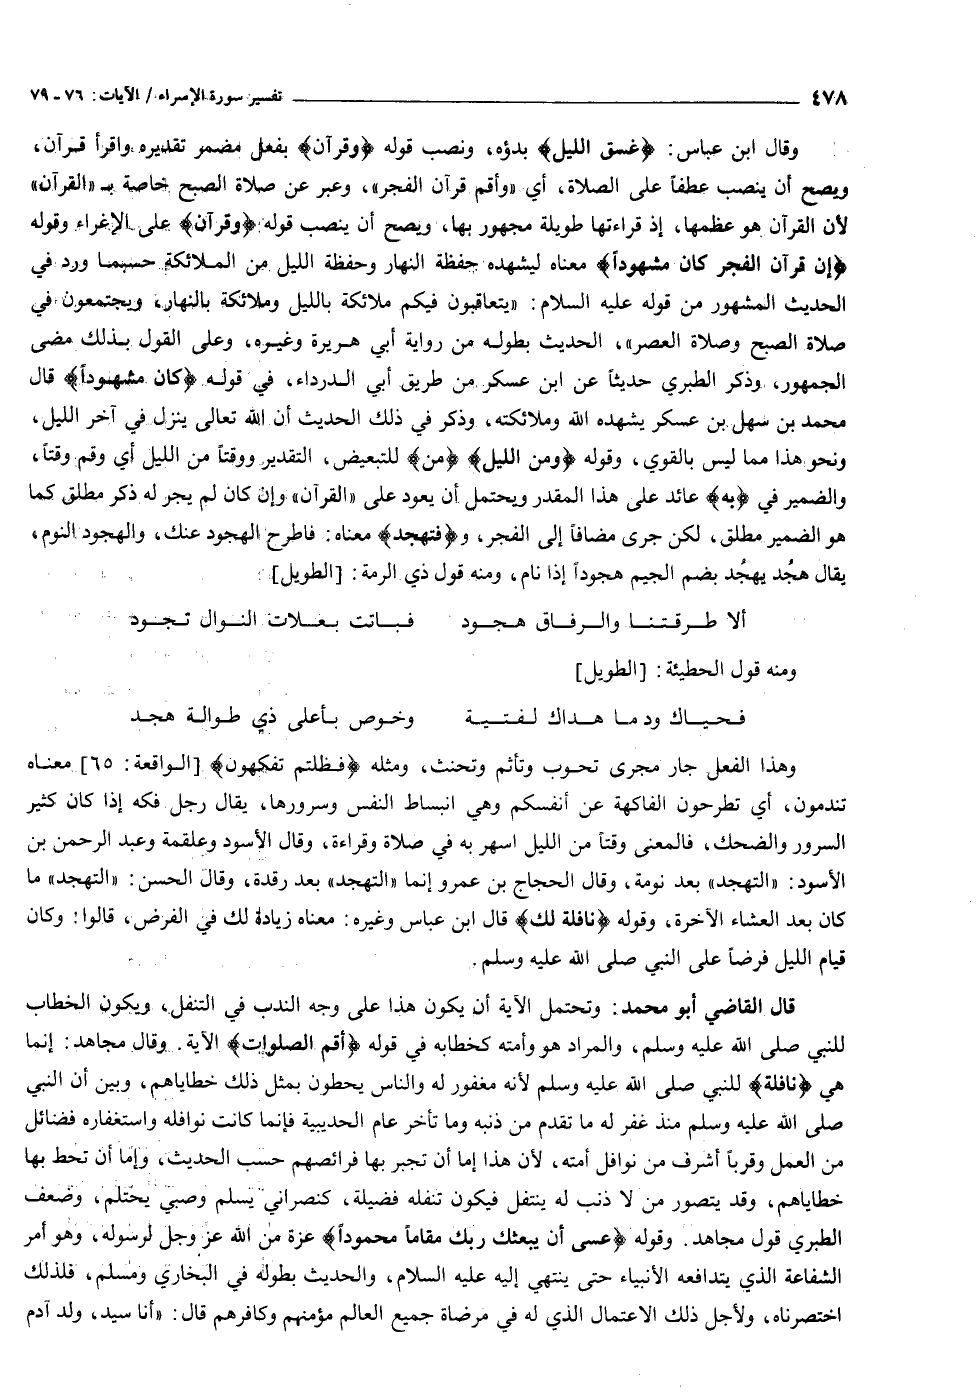 ٤٧٨ تفسير سورة الإسراء / الآيات: ٧٦ - ٧٩
وقال ابن عباس: ﴿غسق الليل﴾ بدؤه، ونصب قوله ﴿وقرآن﴾ بفعل مضمر تقديره واقرأ قرآن،
ويصح أن ينصب عطفاً على الصلاة، أي «وأقم قرآن الفجر»، وعبر عن صلاة الصبح خاصة بـ «القرآن»
لأن القرآن هو عظمها، إذ قراءتها طويلة مجهور بها، ويصح أن ينصب قوله ﴿وقرآن﴾ على الإغراء وقوله
﴿إن قرآن الفجر كان مشهوداً﴾ معناه ليشهده حفظة النهار وحفظة الليل من الملائكة حسبما ورد في
الحديث المشهور من قوله عليه السلام: «يتعاقبون فيكم ملائكة بالليل وملائكة بالنهار، ويجتمعون في
صلاة الصبح وصلاة العصر»، الحديث بطوله من رواية أبي هريرة وغيره، وعلى القول بذلك مضى
الجمهور، وذكر الطبري حديثاً عن ابن عسكر من طريق أبي الدرداء، في قوله ﴿كان مشهوداً﴾ قال
محمد بن سهل بن عسكر يشهده الله وملائكته، وذكر في ذلك الحديث أن الله تعالى ينزل في آخر الليل،
ونحو هذا مما ليس بالقوي، وقوله ﴿ومن الليل﴾ ﴿من﴾ للتبعيض، التقدير ووقتاً من الليل أي وقم وقتاً،
والضمير في ﴿به﴾ عائد على هذا المقدر ويحتمل أن يعود على «القرآن» وإن كان لم يجر له ذكر مطلق كما
هو الضمير مطلق، لكن جرى مضافاً إلى الفجر، و﴿فتهجد﴾ معناه: فاطرح الهجود عنك، والهجود النوم،
يقال هجُد يهجُد بضم الجيم هجوداً إذا نام، ومنه قول ذي الرمة: [الطويل]
ألا طرقتنا والرفاق هجود فباتت بعلات النوال تجود
ومنه قول الحطيئة: [الطويل]
فحياك ود ما هداك لفتية وخوص بأعلى ذي طوالة هجد
وهذا الفعل جار مجرى تحوب وتأثم وتحنث، ومثله ﴿فظلتم تفكهون﴾ [الواقعة: ٦٥] معناه
تندمون، أي تطرحون الفاكهة عن أنفسكم وهي انبساط النفس وسرورها، يقال رجل فكه إذا كان كثير
السرور والضحك، فالمعنى وقتاً من الليل اسهر به في صلاة وقراءة، وقال الأسود وعلقمة وعبد الرحمن بن
الأسود: «التهجد» بعد نومة، وقال الحجاج بن عمرو إنما «التهجد» بعد رقدة، وقال الحسن: «التهجد» ما
كان بعد العشاء الآخرة، وقوله ﴿نافلة لك﴾ قال ابن عباس وغيره: معناه زيادة لك في الفرض، قالوا: وكان
قيام الليل فرضاً على النبي صلى الله عليه وسلم.
قال القاضي أبو محمد: وتحتمل الآية أن يكون هذا على وجه الندب في التنفل، ويكون الخطاب
للنبي صلى الله عليه وسلم، والمراد هو وأمته كخطابه في قوله ﴿أقم الصلوات﴾ الآية. وقال مجاهد: إنما
هي ﴿نافلة﴾ للنبي صلى الله عليه وسلم لأنه مغفور له والناس يحطون بمثل ذلك خطاياهم، وبين أن النبي
صلى الله عليه وسلم منذ غفر له ما تقدم من ذنبه وما تأخر عام الحديبية فإنما كانت نوافله واستغفاره فضائل
من العمل وقرباً أشرف من نوافل أمته، لأن هذا إما أن تجبر بها فرائضهم حسب الحديث، وإما أن تحط بها
خطاياهم، وقد يتصور من لا ذنب له ينتفل فيكون تنفله فضيلة، كنصراني يسلم وصبي يحتلم، وضعف
الطبري قول مجاهد. وقوله ﴿عسى أن يبعثك ربك مقاماً محموداً﴾ عزة من الله عز وجل لرسوله، وهو أمر
الشفاعة الذي يتدافعه الأنبياء حتى ينتهي إليه عليه السلام، والحديث بطوله في البخاري ومسلم، فلذلك
اختصرناه، ولأجل ذلك الاعتمال الذي له في مرضاة جميع العالم مؤمنهم وكافرهم قال: «أنا سيد، ولد آدم